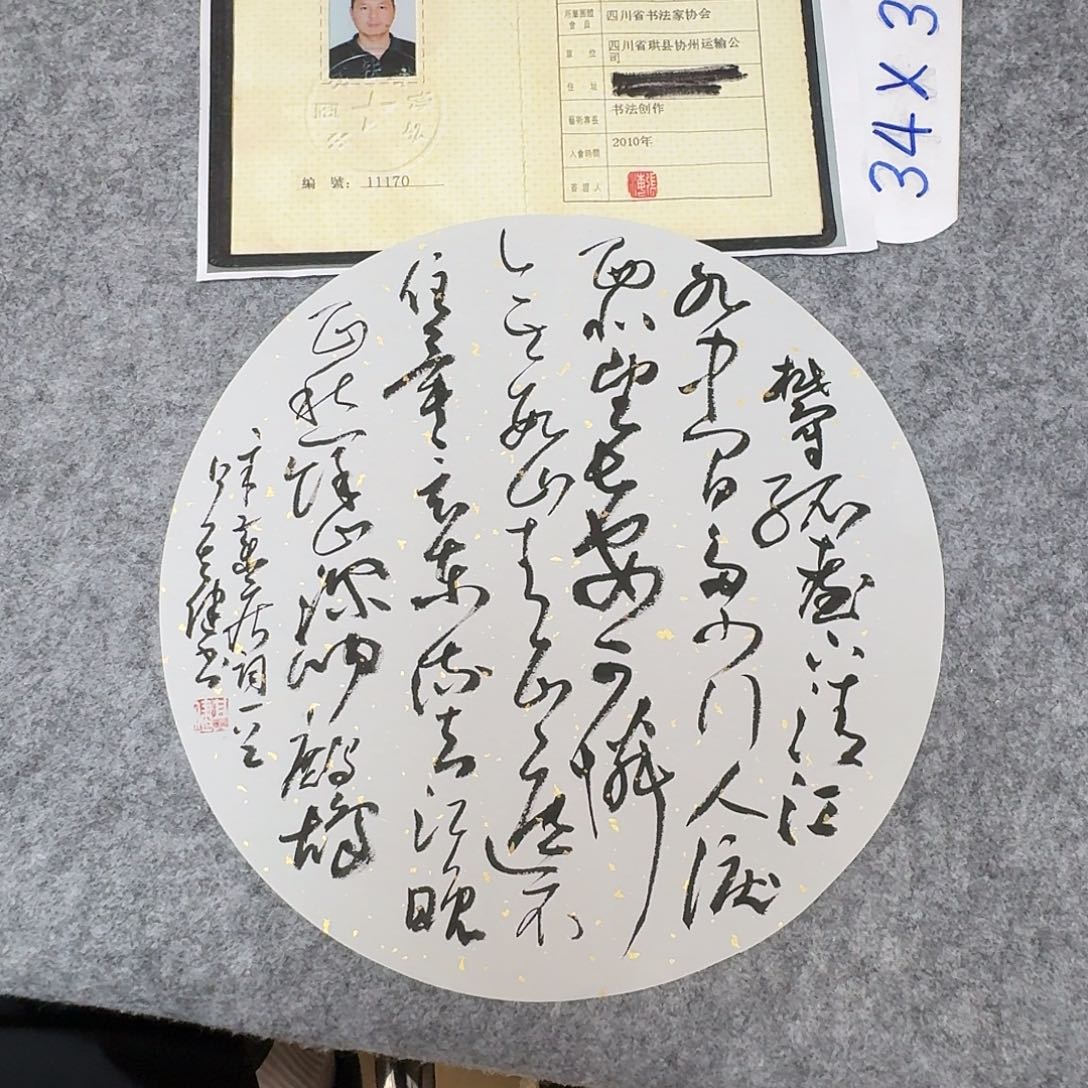 所屬團體會員 四川省书法家协会
單位 四川省珙县协州运输公
司
住址
藝術專長 书法创作
入會時間 2010年
簽證人
編號：11170
34X3
鬱孤臺下清江
水中間多少行人淚
西北望長安可憐
無數山青山遮不
住畢竟東流去江晚
正愁余山深聞鷓鴣
辛棄疾詞一首
書